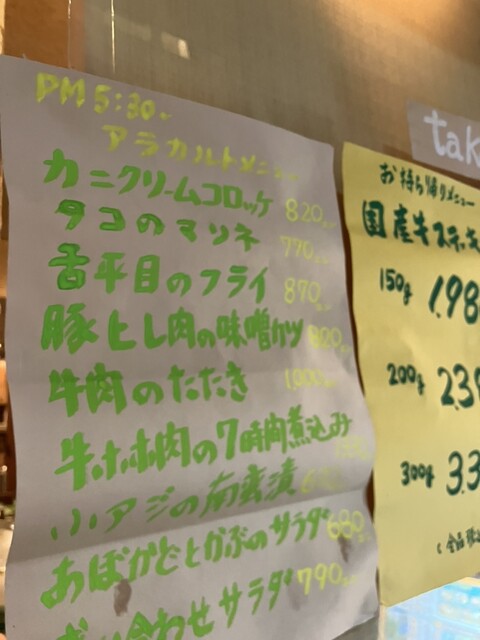 PM 5:30~
アラカルトメニュー
カニクリームコロッケ 820
タコのマリネ 770
舌平目のフライ 870
豚ヒレ肉の味噌カツ 820
牛肉のたたき 1,000
牛ホホ肉の7時間煮込み
小アジの南蛮漬
あぼかどとかぶのサラダ 680
合わせサラダ 790
tak
お持ち帰りメニュー
国産牛ステーキ
150g 1.98
200g 2.3
300g 3.3